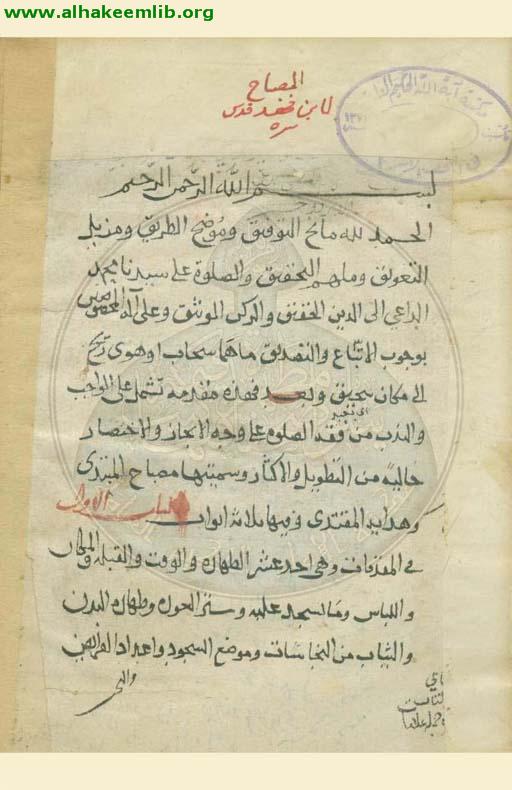 www.alhakeemlib.org
المصباح
لابن فهد قدس
سره
مكتبة آية الله الحكيم العامة
بسم الله الرحمن الرحيم
الحمد لله مانح التوفيق وموضح الطريق ومزيل
التعويق وملهم التحقيق والصلوة على سيدنا محمد
الداعي الى الدين الحقيق والركن الوثيق وعلى آله المخصوصين
بوجوب الاتباع والتصديق ما هما سحاب او هوى ريح
في مكان سحيق وبعد فهذه مقدمه تشتمل على الواجب
والندب من فقه الصلوه على وجه الايجاز والاختصار
خاليه من التطويل والاكثار وسميتها مصباح المبتدى
وهدايه المقتدى وفيها ثلاثه ابواب الباب الاول
في المقدمات وهي احد عشر الطهاره والوقت والقبله والمكان
واللباس وما يسجد عليه وستر العوره وطهاره البدن
والثياب من النجاسات وموضع السجود واعداد الفرايض